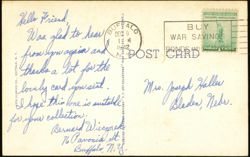 Hello Friend,
Was glad to hear
from you again and
thanks a lot for the
lovely card you sent.
I hope this one is suitable
for your collection.
Bernard
Buffalo, N.Y.
BUFFALO
BUY
WAR SAVINGS
POST CARD
Mrs. Joseph Haller
Nebr.